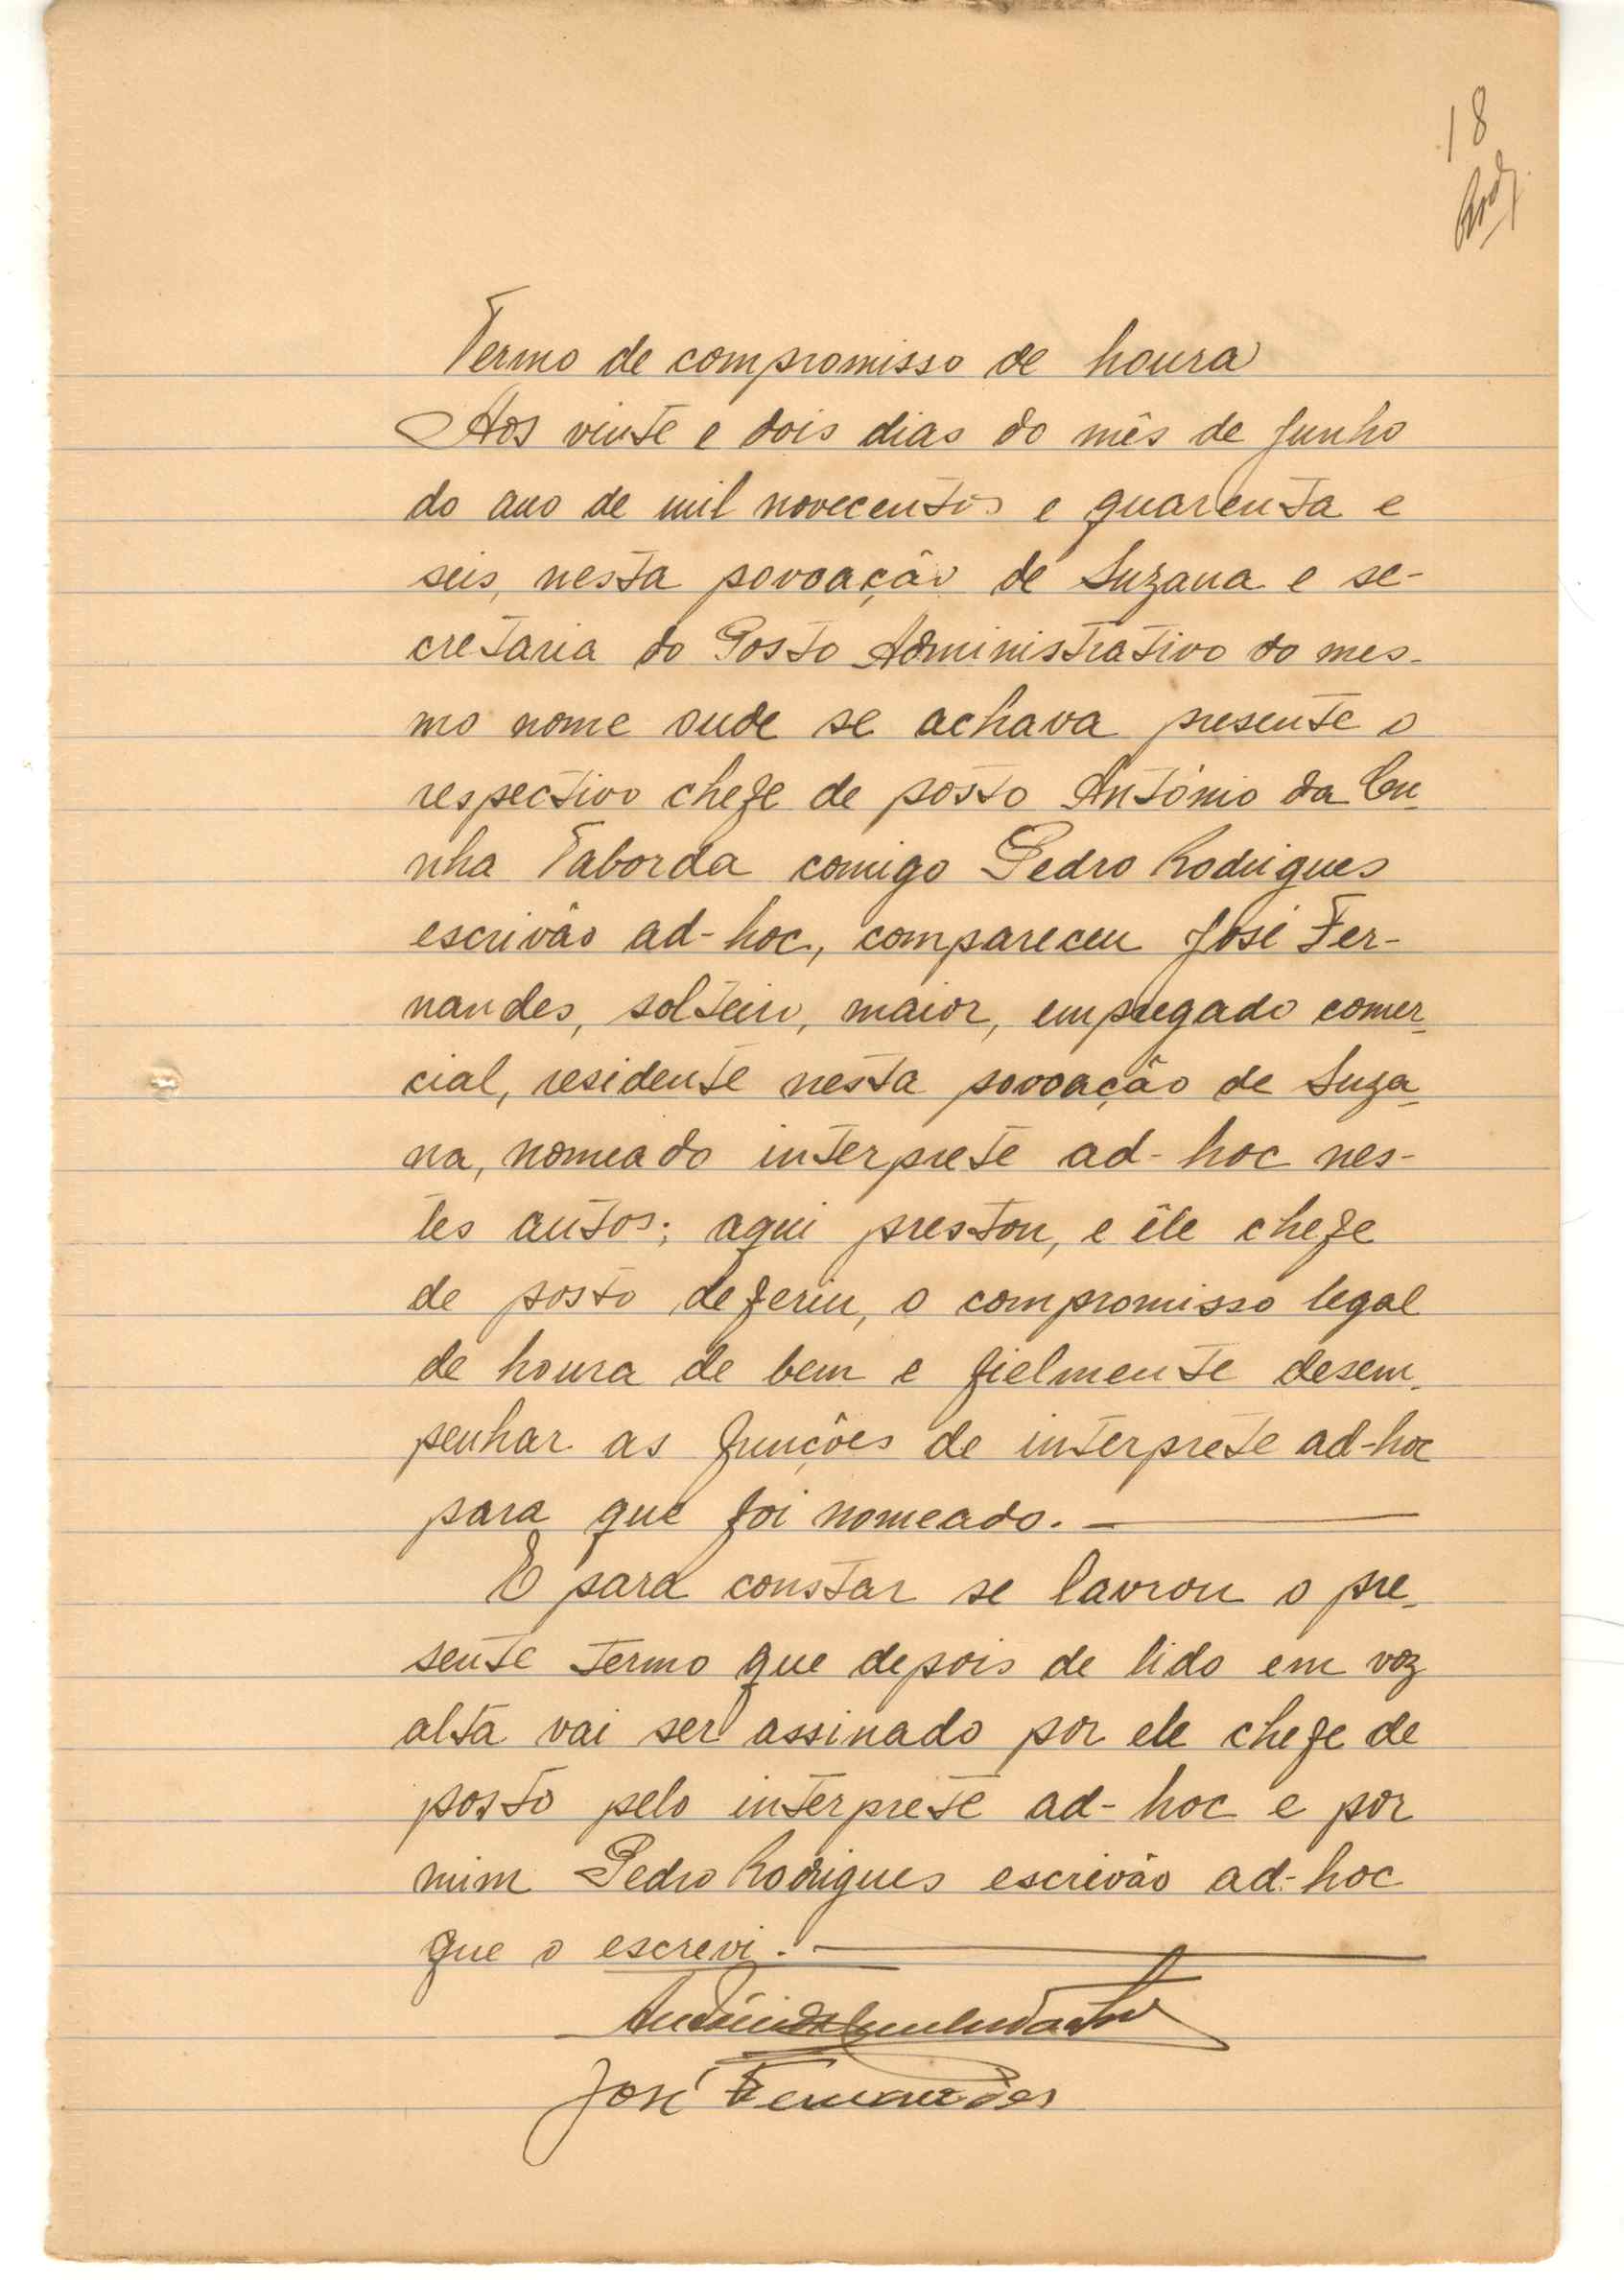 18
Rodz.
Termo de compromisso de honra
Aos vinte e dois dias do mês de Junho
do ano de mil novecentos e quarenta e
seis, nesta povoação de Suzana e se-
cretaria do Posto Administrativo do mes-
mo nome onde se achava presente o
respectivo chefe de posto António da Cu-
nha Taborda comigo Pedro Rodrigues
escrivão ad-hoc, compareceu José Fer-
nandes, solteiro, maior, empregado comer-
cial, residente nesta povoação de Suza-
na, nomeado interprete ad-hoc nes-
tes autos; aqui prestou, e êle chefe
de posto deferiu, o compromisso legal
de honra de bem e fielmente desem-
penhar as funções de interprete ad-hoc
para que foi nomeado. —
E para constar se lavrou o pre-
sente termo que depois de lido em voz
alta vai ser assinado por ele chefe de
posto pelo interprete ad-hoc e por
mim Pedro Rodrigues escrivão ad-hoc
que o escrevi. —
António da Cunha
José Fernandes